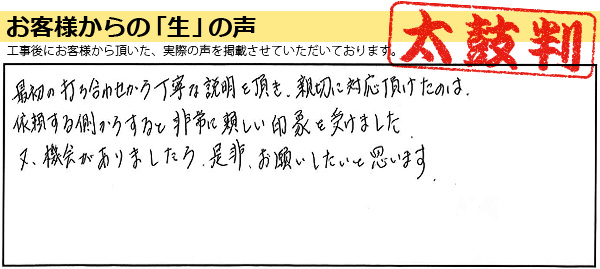 お客様からの「生」の声
太鼓判
工事後にお客様から頂いた、実際の声を掲載させていただいております。
最初の打ち合わせから丁寧な説明を頂き、親切に対応頂けたのは、
依頼する側からすると非常に頼しい印象を受けました。
又、機会がありましたら、是非、お願いしたいと思います。